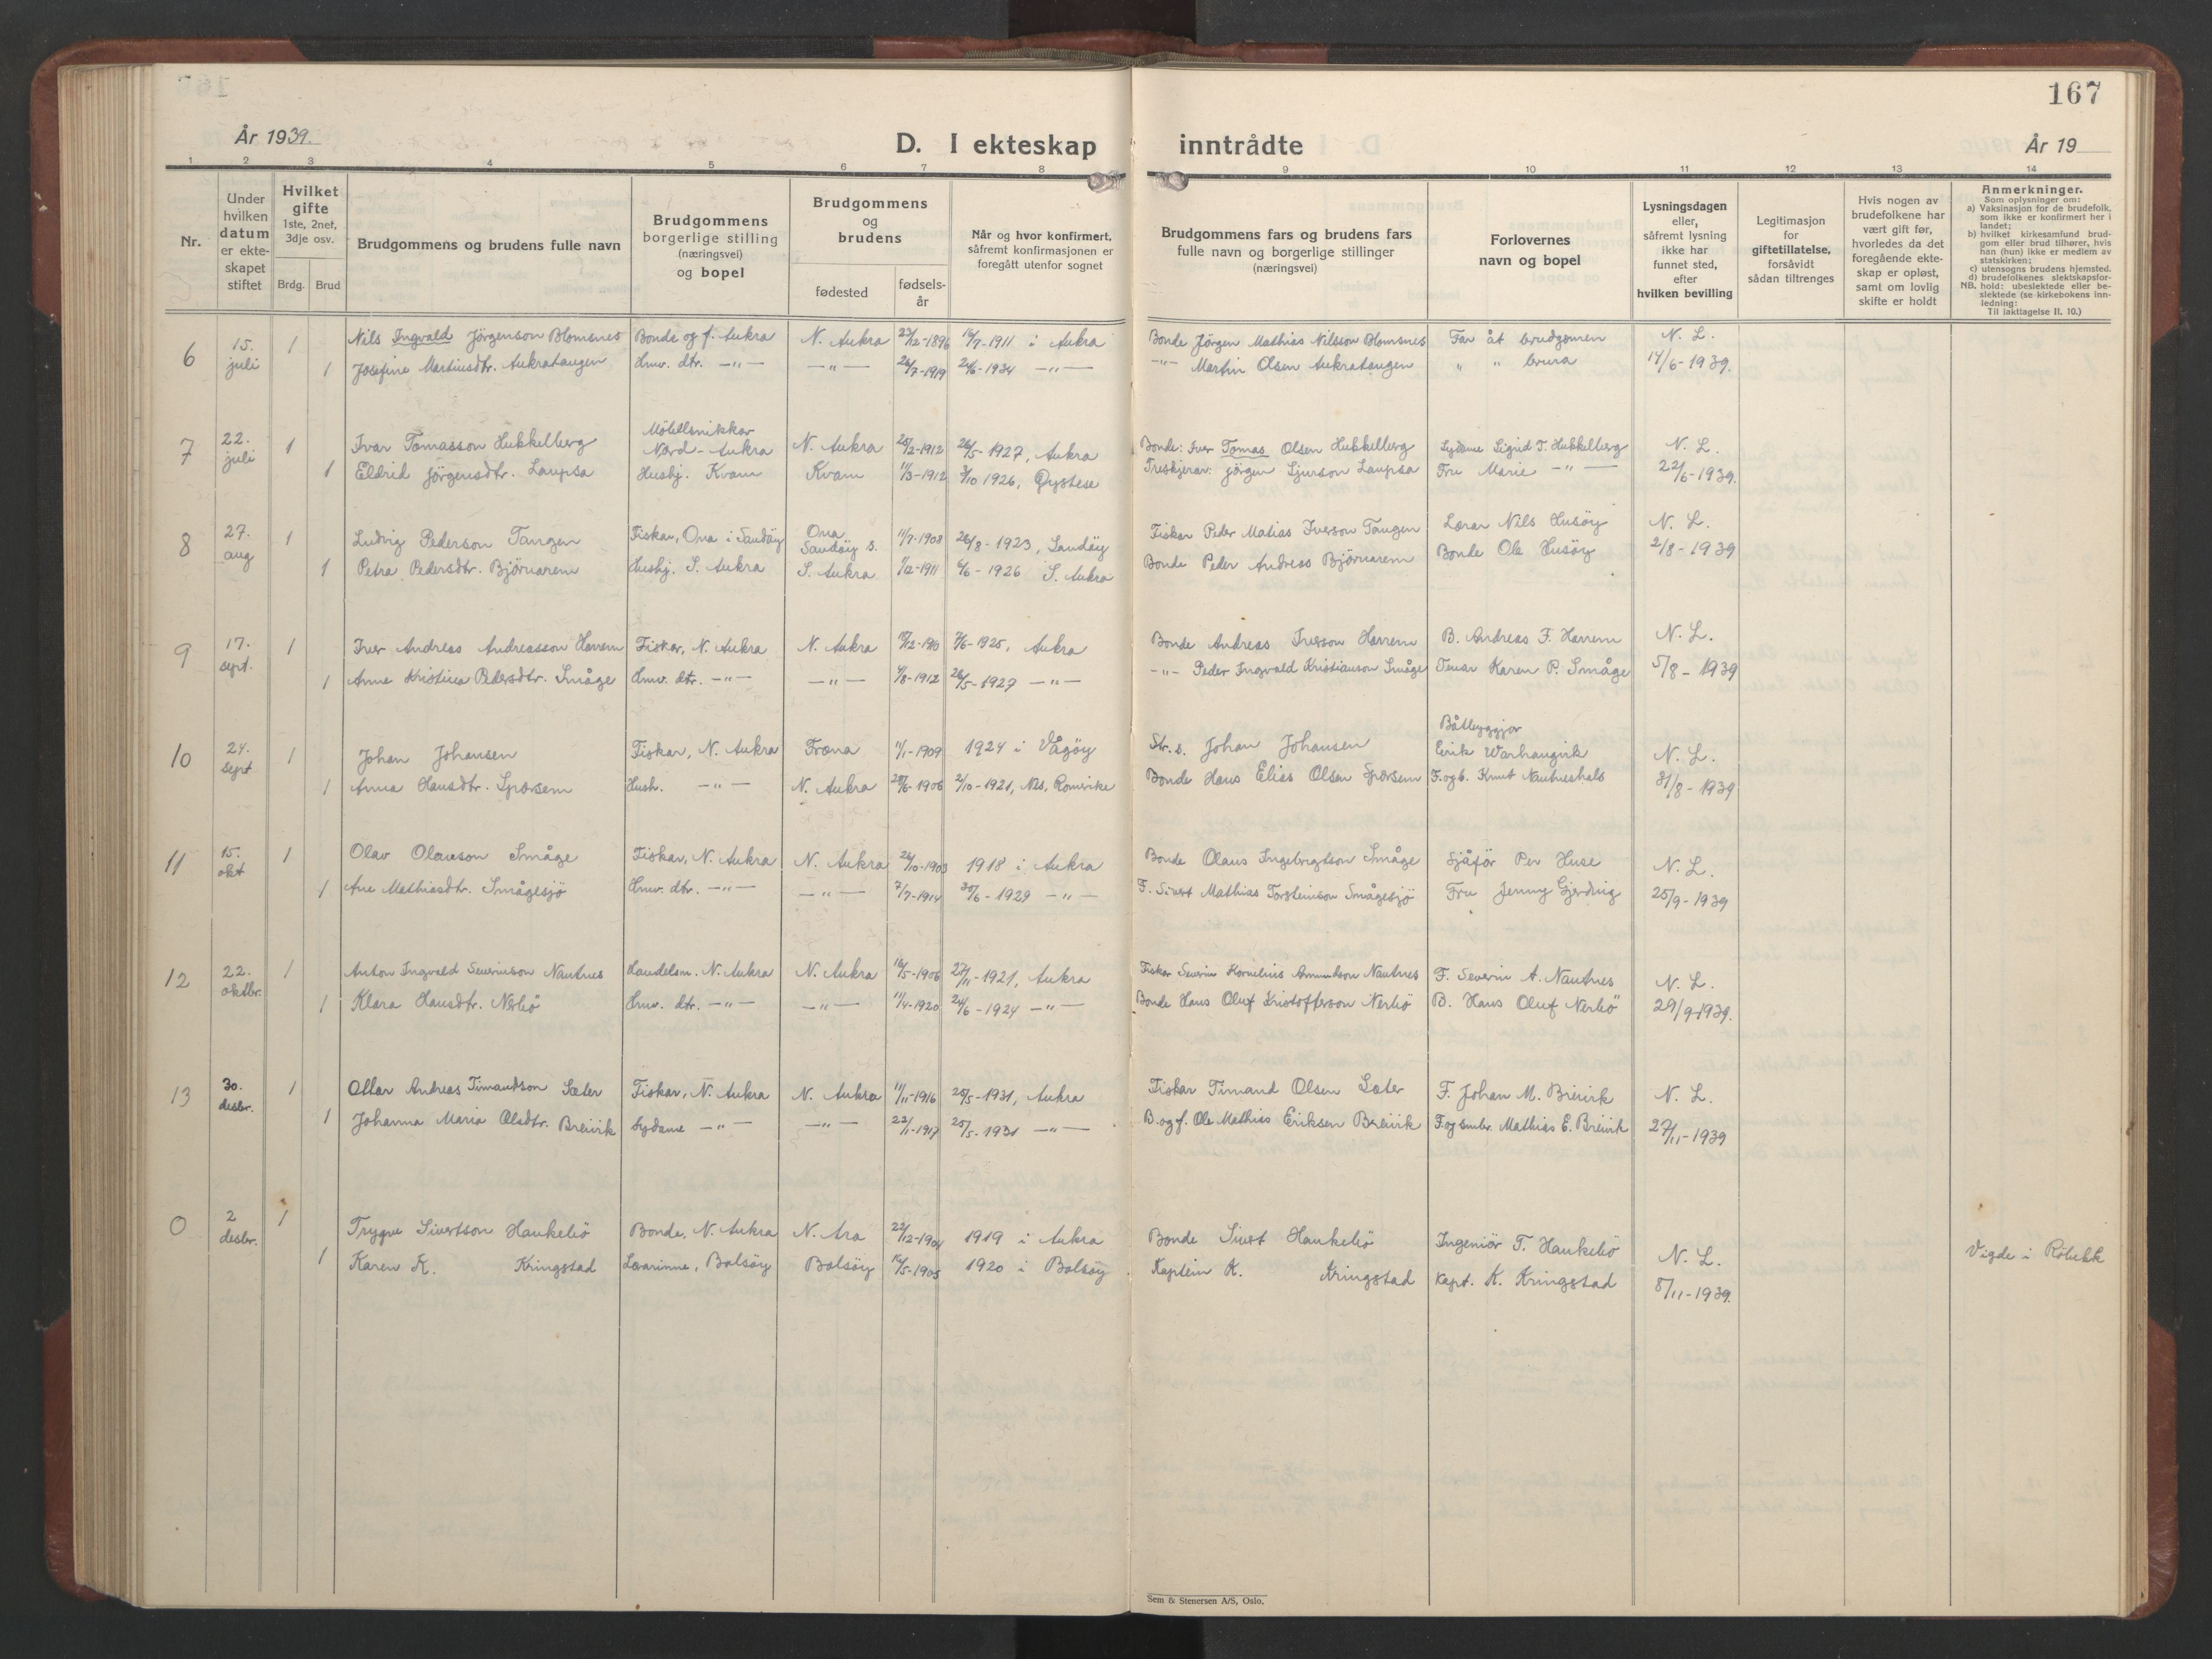 167
År 1939. D. I ekteskap inntrådte År 19
1 2 3 4 5 6 7 8 9 10 11 12 13 14
Nr.
Under hvilken datum er ekte-skapet stiftet
Hvilket gifte 1ste, 2net, 3dje osv.
Brdg. Brud
Brudgommens og brudens fulle navn
Brudgommens borgerlige stilling (næringsvei) og bopel
Brudgommens og brudens
fødested fødsels-år
Når og hvor konfirmert, såfremt konfirmasjonen er foregått utenfor sognet
Brudgommens fars og brudens fars fulle navn og borgerlige stillinger (næringsvei)
Forlovernes navn og bopel
Lysningsdagen eller, såfremt lysning ikke har funnet sted, efter hvilken bevilling
Legitimasjon for giftetillatelse, forsåvidt sådan tiltrenges
Hvis nogen av brudefolkene har vært gift før, hvorledes da det foregående ekte-skap er opløst, samt om lovlig skifte er holdt
Anmerkninger.
Som oplysninger om:
a) Vaksinasjon for de brudefolk, som ikke er konfirmert her i landet;
b) hvilket kirkesamfund brud-gom eller brud tilhører, hvis han (hun) ikke er medlem av statskirken;
c) utensogns brudens hjemsted.
d) brudefolkenes slektskapsfor-hold: ubeslektede eller be-slektede (se kirkebokens inn-ledning:
NB.
Til iakttagelse II. 10.)
6 15. juli 1 Nils Ingvald Jörgenson Blomsnes Bonde og f. Aukra N. Aukra 23/12-1896 16/7-1911 i Aukra Bonde Jörgen Mathias Nilsson Blomsnes Far åt brudgomen N. L.
1 Josefine Martinsdtr. Aukratangen Hmv. dtr. -"- -"- 26/7-1919 24/6-1934 -"- -"- Martin Olsen Aukratangen " " brura 14/6-1939.
7 22. juli 1 Ivar Tomasson Hukkelberg Möbelsnikkar Nord-Aukra N. Aukra 25/2-1912 26/5-1927, Aukra Bonde: Iver Tomas Olsen Hukkelberg Sydame Sigrid T. Hukkelberg N. L.
1 Eldrid Jörgensdtr. Laupsa Hushj. Kvam Kvam 11/3-1912 3/10 1926, Öystese Treskjerar: Jörgen Sjurson Laupsa Fru Marie -"- 22/6-1939.
8 27. aug 1 Ludvig Pederson Tangen Fiskar, Ona i Sandöy Ona Sandöy s. 11/7-1908 26/8-1923, Sandöy Fiskar Peder Matias Iverson Tangen Lærar Nils Husöy N. L.
1 Petra Pedersdtr. Björnarem Hushj. S. Aukra S. Aukra 1/12-1911 6/6-1926 S. Aukra Bonde Peder Andreas Björnarem Bonde Ole Husöy 2/8-1939
9 17. sept. 1 Iver Andreas Andreasson Harrem Fiskar, N. Aukra N. Aukra 18/12-1910 7/6-1925, Aukra Bonde Andreas Iverson Harrem B. Andreas F. Harrem N. L.
1 Anne Kristine Pedersdtr. Småge Hmv. dtr. -"- -"- 4/8-1912 26/5-1927 -"- -"- Peder Ingvald Kristianson Småge Tenar Karen P. Småge 5/8-1939
10 24. sept 1 Johan Johansen Fiskar, N. Aukra Fræna 11/1-1909 1924 i Vågöy Str. s. Johan Johansen Båtbyggjar Eirik Varhaugvik N. L.
1 Anna Hansdtr. Sporsem Hush. -"- N. Aukra 28/6-1906 2/10-1921, Nes, Romerike Bonde Hans Elias Olsen Sporsem F. og b. Knut Nautneshals 31/8-1939
11 15. okt 1 Olav Olauson Småge Fiskar, N. Aukra N. Aukra 24/10-1903 1918 i Aukra Bonde Olaus Ingebrigtson Småge Sjåför Per Huse N. L.
1 Ane Mathiasdtr. Smågesjö Hmv. dtr. -"- -"- 7/7-1914 30/6-1929 -"- F. Sivert Mathias Torsteinson Smågesjö Fru Jenny Gjerding 25/9-1939
12 22. oktbr. 1 Anton Ingvald Severinson Nautnes Handelsm. N. Aukra N. Aukra 16/5-1906 27/11-1921, Aukra Fiskar Severin Kornelius Amundson Nautnes F. Severin A. Nautnes N. L.
1 Klara Hansdtr. Nerbö Hmv. dtr. -"- -"- 11/4-1920 24/6-1924 -"- Bonde Hans Oluf Kristofferson Nerbö B. Hans Oluf Nerbö 29/9-1939.
13 30. desbr. 1 Ottar Andreas Timandson Sæter Fiskar, N. Aukra N. Aukra 11/11-1916 25/5-1931, Aukra Fiskar Timand Olsen Sæter F. Johan M. Breivik N. L.
1 Johanna Maria Olsdtr. Breivik Sydame -"- -"- 22/1-1917 25/5-1931 -"- B. og f. Ole Mathias Eriksen Breivik F. og smbr. Mathias E. Breivik 27/11-1939
0 2 desbr. 1 Trygve Sivertson Haukebö Bonde, N. Aukra N. Ara 22/12-1904 1919 i Aukra Bonde Sivert Haukebö Ingeniör T. Haukebö N. L.
1 Karen K. Kringstad Lærarinne, Bolsöy Bolsöy 16/5-1905 1920 i Bolsöy Kaptein K. Kringstad Kapt. K. Kringstad 8/11-1939. Vigde i Röbekk
Sem & Stenersen A/S, Oslo.